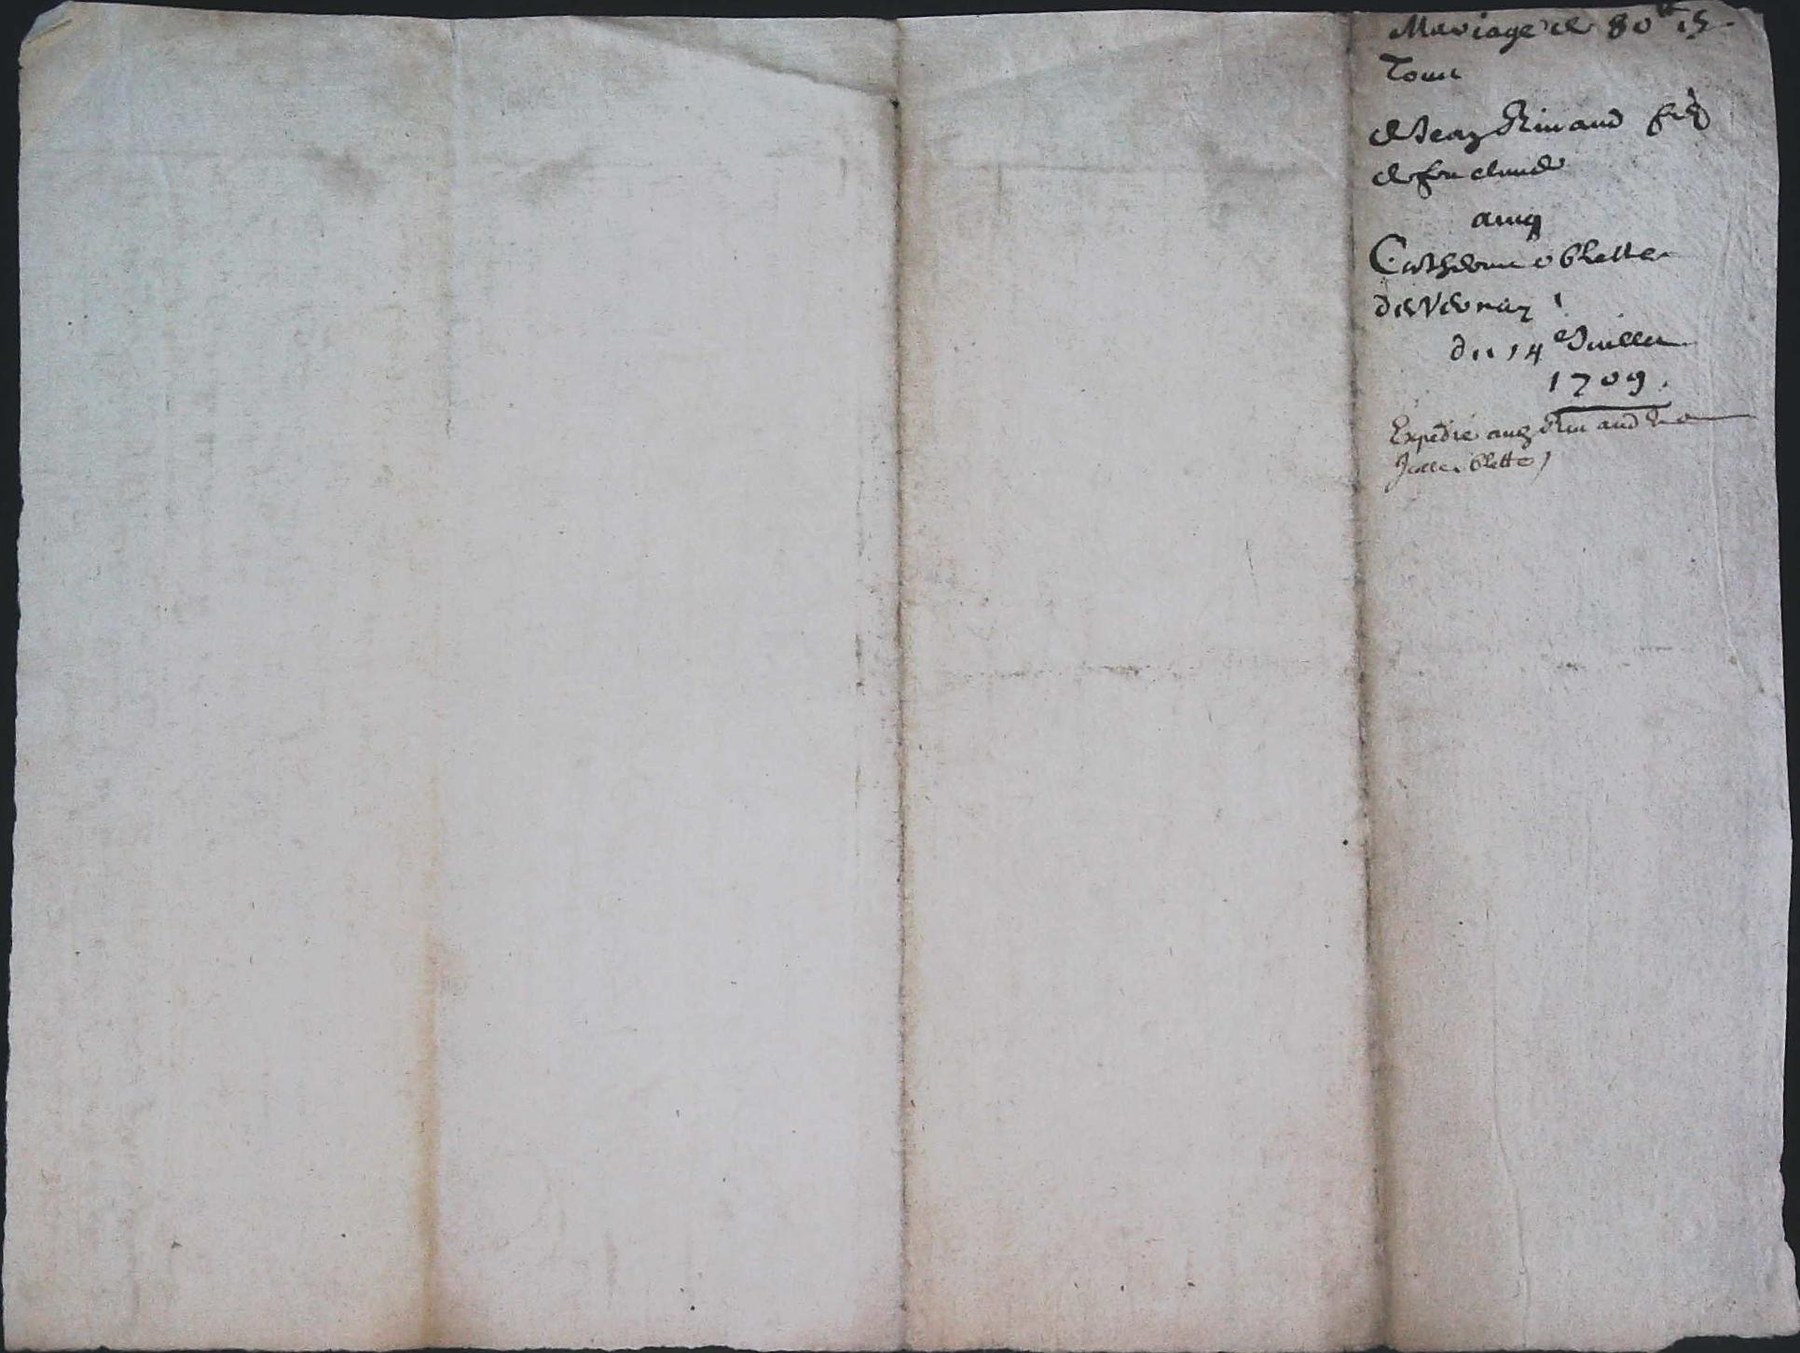 Mariage de 80ᵗᵗ 15
Tour
de Jean Rinaud fils
de feu claude
avec
Catherine oblette
de Vevray
du 14 Juillet
1709.
Expedié aux Rinaud &
oblette